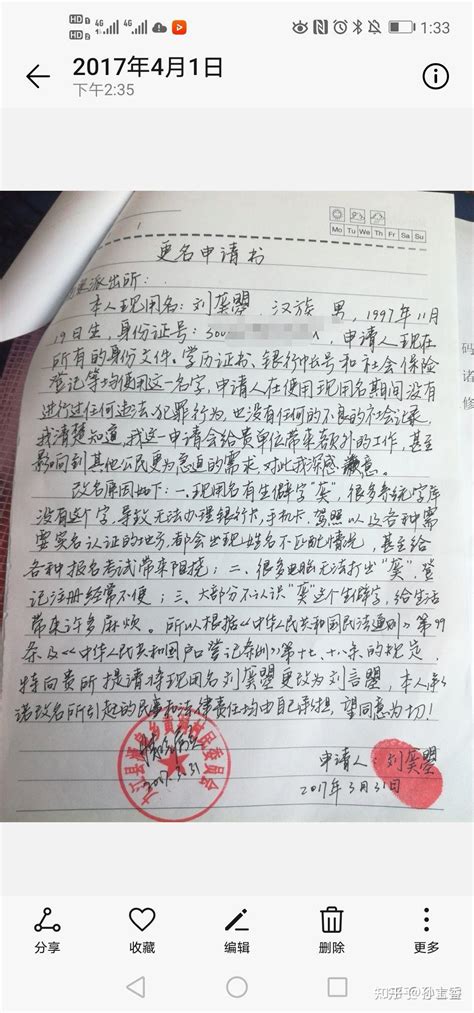 HD 4G 4G 1:33
HD
2017年4月1日
下午2:35
Mo Tu We Th Fr Sa Su
更名申请书
派出所：
本人现用名：刘 曌，汉族，男，1997年11月
19日生，身份证号：500 X，申请人现在
所有的身份文件、学历证书、银行帐号和社会保险
登记等均使用这一名字，申请人在使用现用名期间没有
进行过任何违法犯罪行为，也没有任何的不良的社会记录，
我清楚知道，我这一申请会给贵单位带来额外的工作，甚至
影响到其他公民更为急迫的需求，对此我深感歉意。
改名原因如下：一、现用名有生僻字“ ”，很多系统字库
没有这个字，导致无法办理银行卡，手机卡，驾照以及各种需
要实名认证的地方，都会出现姓名不匹配情况，甚至给
各种报名考试带来阻挠；二、很多电脑无法打出“ ”，登
记注册经常不便；三、大部分不认识“ ”这个生僻字，给生活
带来许多麻烦。所以根据《中华人民共和国民法通则》第99
条及《中华人民共和国户口登记条例》第十七、十八条的规定，
特向贵所提请将现用名刘 曌更改为刘言曌，本人承
诺改名所引起的民事和法律责任均由自己承担，望同意为切！
村民委员会
2017.3.31
申请人：刘 曌
2017年3月31日
分享 收藏 编辑 删除 更多
知乎